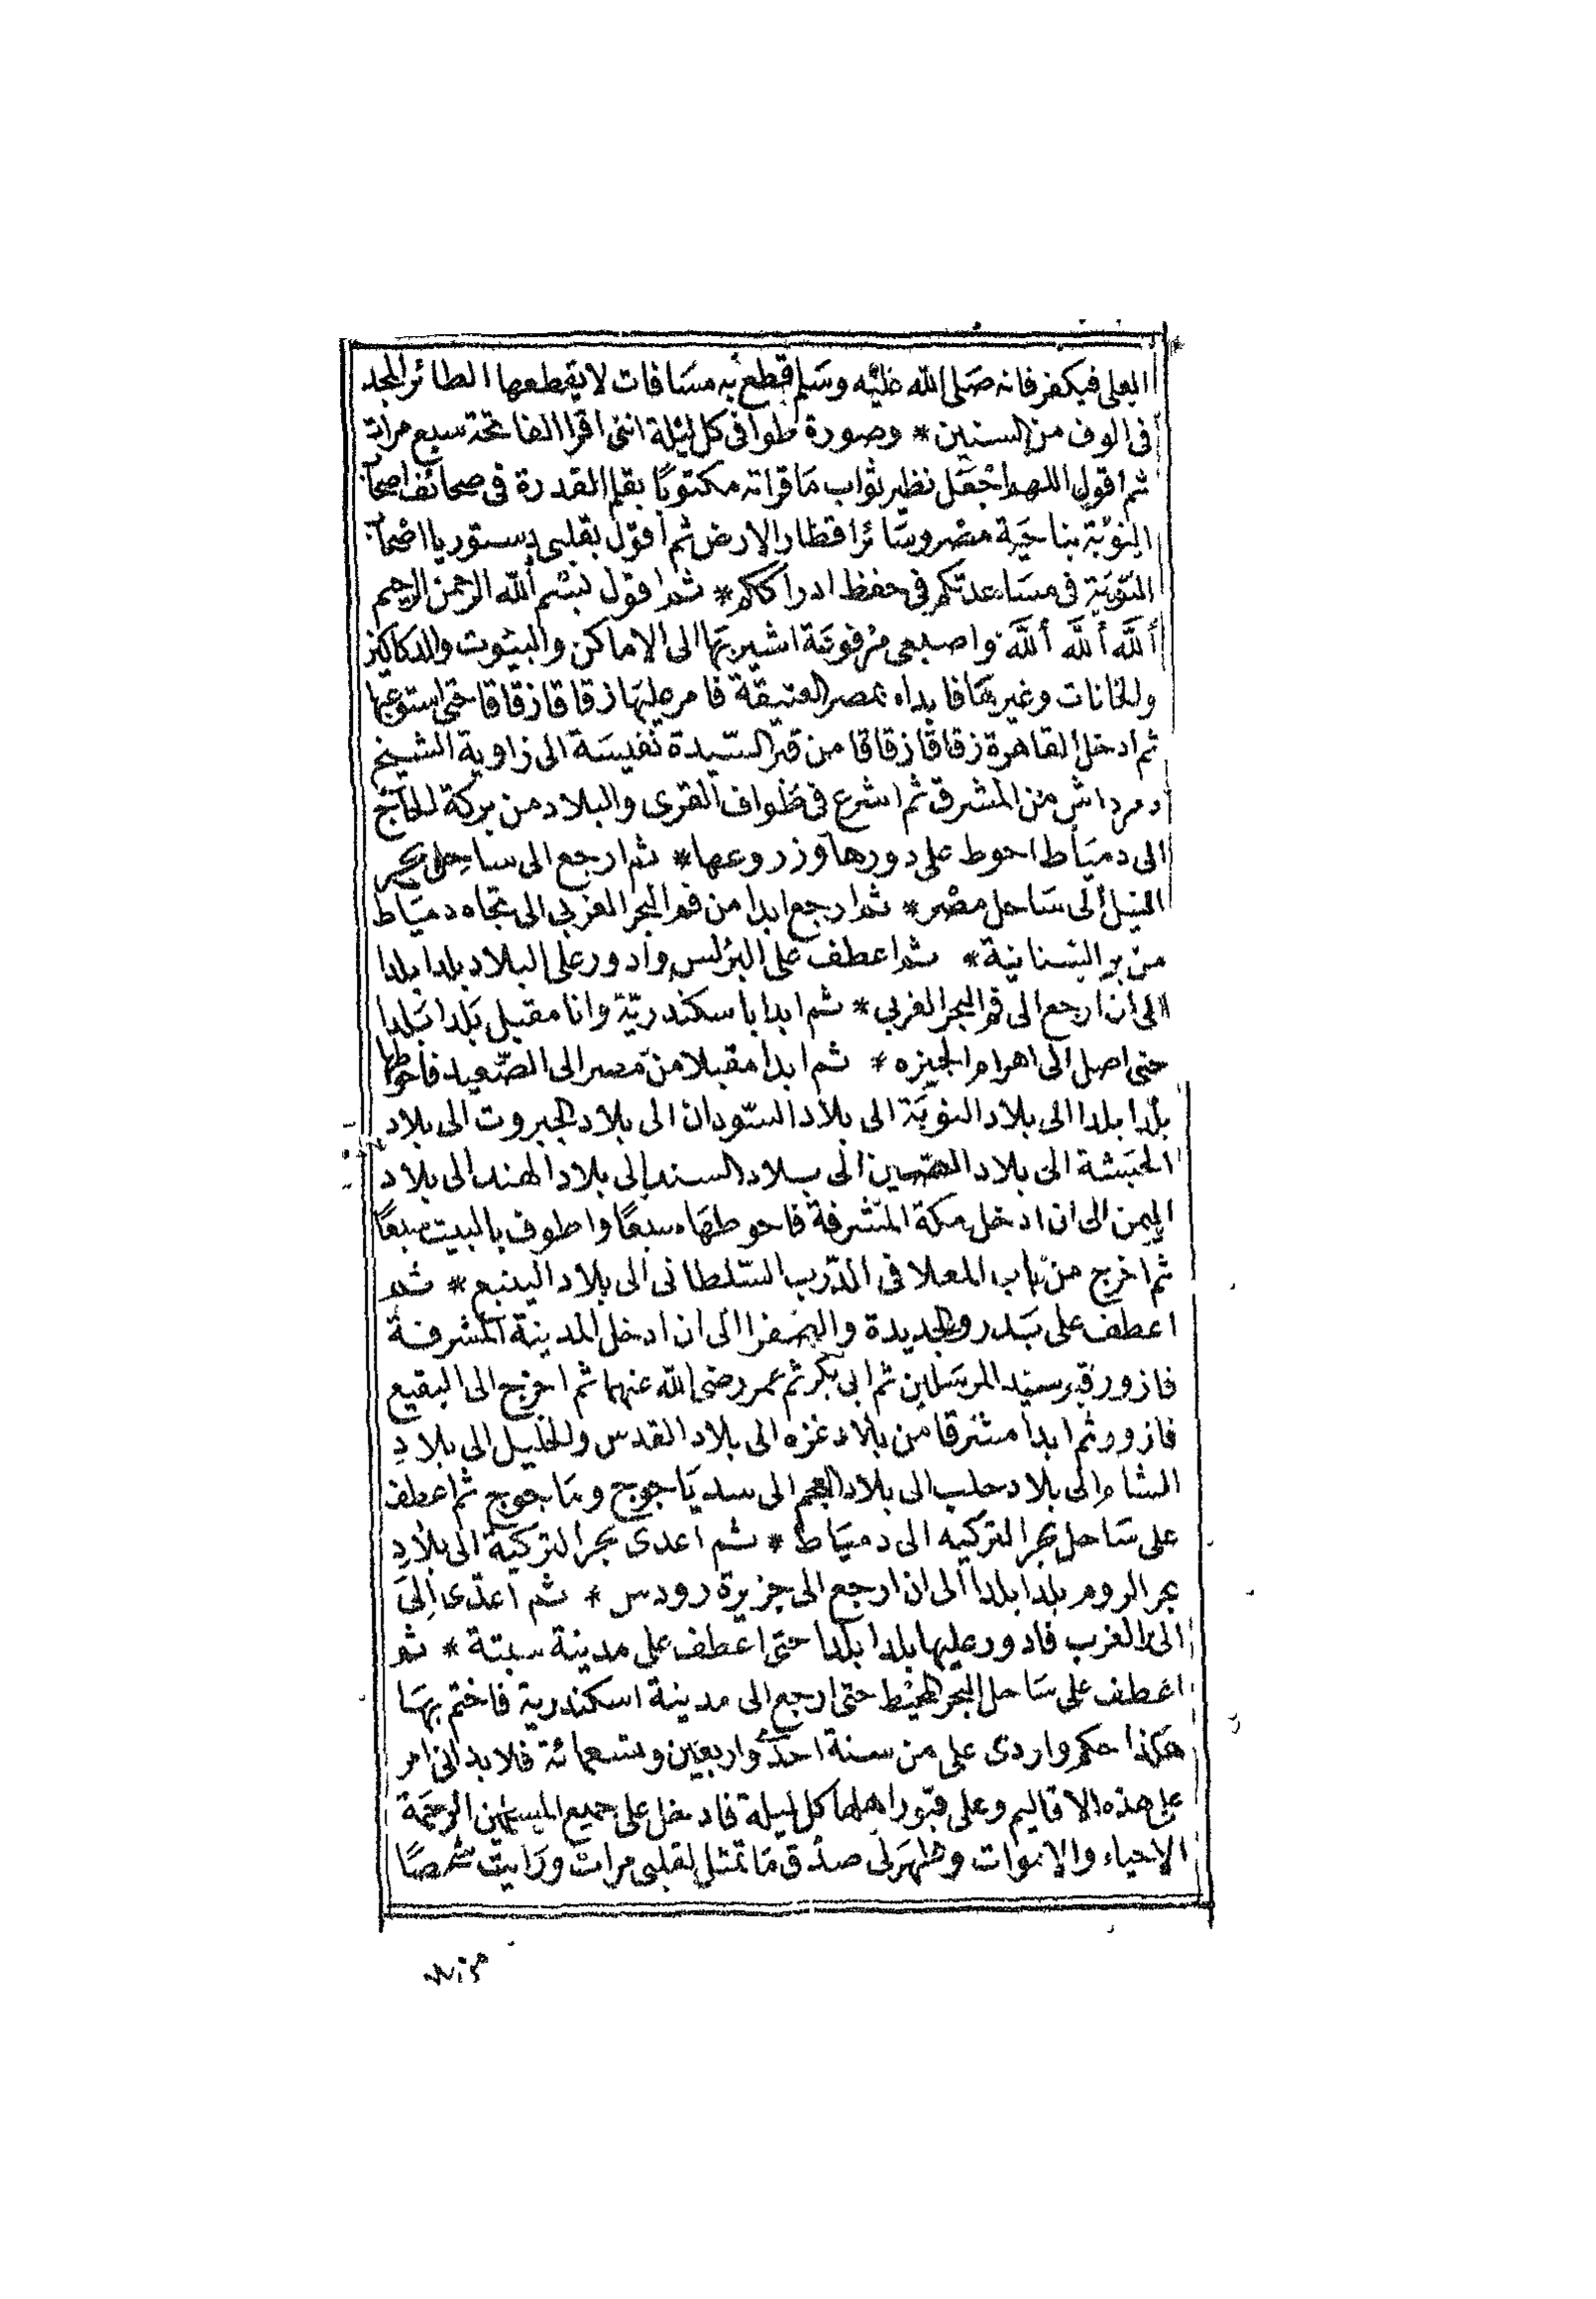 العلى فيكفر فانه صَلى الله عليْه وسَلم قطع به مسَافات لا يقطعها الطائر المجد
فى الوف من السنين * وصورة طوافى كل ليْلة اننى اقرا الفاتحة سبع مرات
ثم اقول اللهم اجْعَل نظير ثواب مَا قراته مكتوبًا بقلم القدرة فى صحائف اصحاب
النوْبَة بناحيَة مصْر وسَائر اقطار الارض ثم اقول بقلبى دستور يا اصْحاب
النّوْبَة فى مسَاعدتكم فى حفظ ادراككم * ثم اقول بسْم الله الرحمن الرحيم
أللَّه أللَّه أللَّه واصبعى مرفوعَة اشير بهَا الى الاماكن والبيُوت والدكاكين
والخانات وغيرهَا فابداء بمصر العتيقة فامر عليهَا زقاقا زقاقا حتى استوعبها
ثم ادخل القاهرة زقاقا زقاقا من قبر السّيدة نفيسَة الى زاوية الشيخ
دمرداش من المشرق ثم اشرع فى طواف القرى والبلاد من بركة الحَاج
الى دميَاط احوط على دورهَا وزروعها * ثم ارجع الى ساحل بحر
النيل الى سَاحل مصْر * ثم ارجع ابدا من فم البحر الغربى الى تجاه دميَاط
من بر السنانية * ثم اعطف على البرُلس وادور على البلاد بلدا بلدا
الى ان ارجع الى فم البحر الغربى * ثم ابدا باسكندريّة وانا مقبل بَلدا بَلدا
حتى اصل الى اهرام الجيزه * ثم ابدا مقبلا من مصر الى الصّعيد فاحوطها
بلدا بلدا الى بلاد النوبَة الى بلاد السّودان الى بلاد الجبروت الى بلاد
الحَبَشة الى بلاد الصين الى بلاد السند الى بلاد الهند الى بلاد
اليمن الى ان ادخل مكة المشرفة فاحوطهَا سبعًا واطوف بالبيت سبعًا
ثم اخرج من باب المعلا فى الدّرب السّلطانى الى بلاد الينبع * ثم
اعطف على بَدر والجديدة والصفرا الى ان ادخل المدينة المشرفة
فازور قبر سيّد المرسَلين ثم ابى بكر ثم عمر رضى الله عنهما ثم اخرج الى البقيع
فازور ثم ابدا مشرقا من بلاد غزه الى بلاد القدس والخليل الى بلادِ
الشام الى بلاد حلب الى بلاد العجم الى سد يَاجوج ومَاجوج ثم اعطف
على سَاحل بحر التركيه الى دميَاط * ثم اعدى بحر التركية الى بلادِ
بحر الروم بلدا بلدا الى ان ارجع الى جزيرة رودس * ثم اعدّى الىَ
الى الغرب فادور عليها بلدا بلدا حتى اعطف على مدينة سبتة * ثم
اعطف على سَاحل البحر المحيْط حتى ارجع الى مدينة اسكندرية فاختم بهَا
هَكذا حكم واردى على من سنة احدى واربعين وتسعمائة فلا بد انى امر
على هذه الاقاليم وعلى قبُور اهلها كل ليلة فادخل على جميع المسلمين الرحمَة
الاحياء والاموات وظهَر لى صدْق مَا تمثل لقلبى مرات ورَايت شخصًا